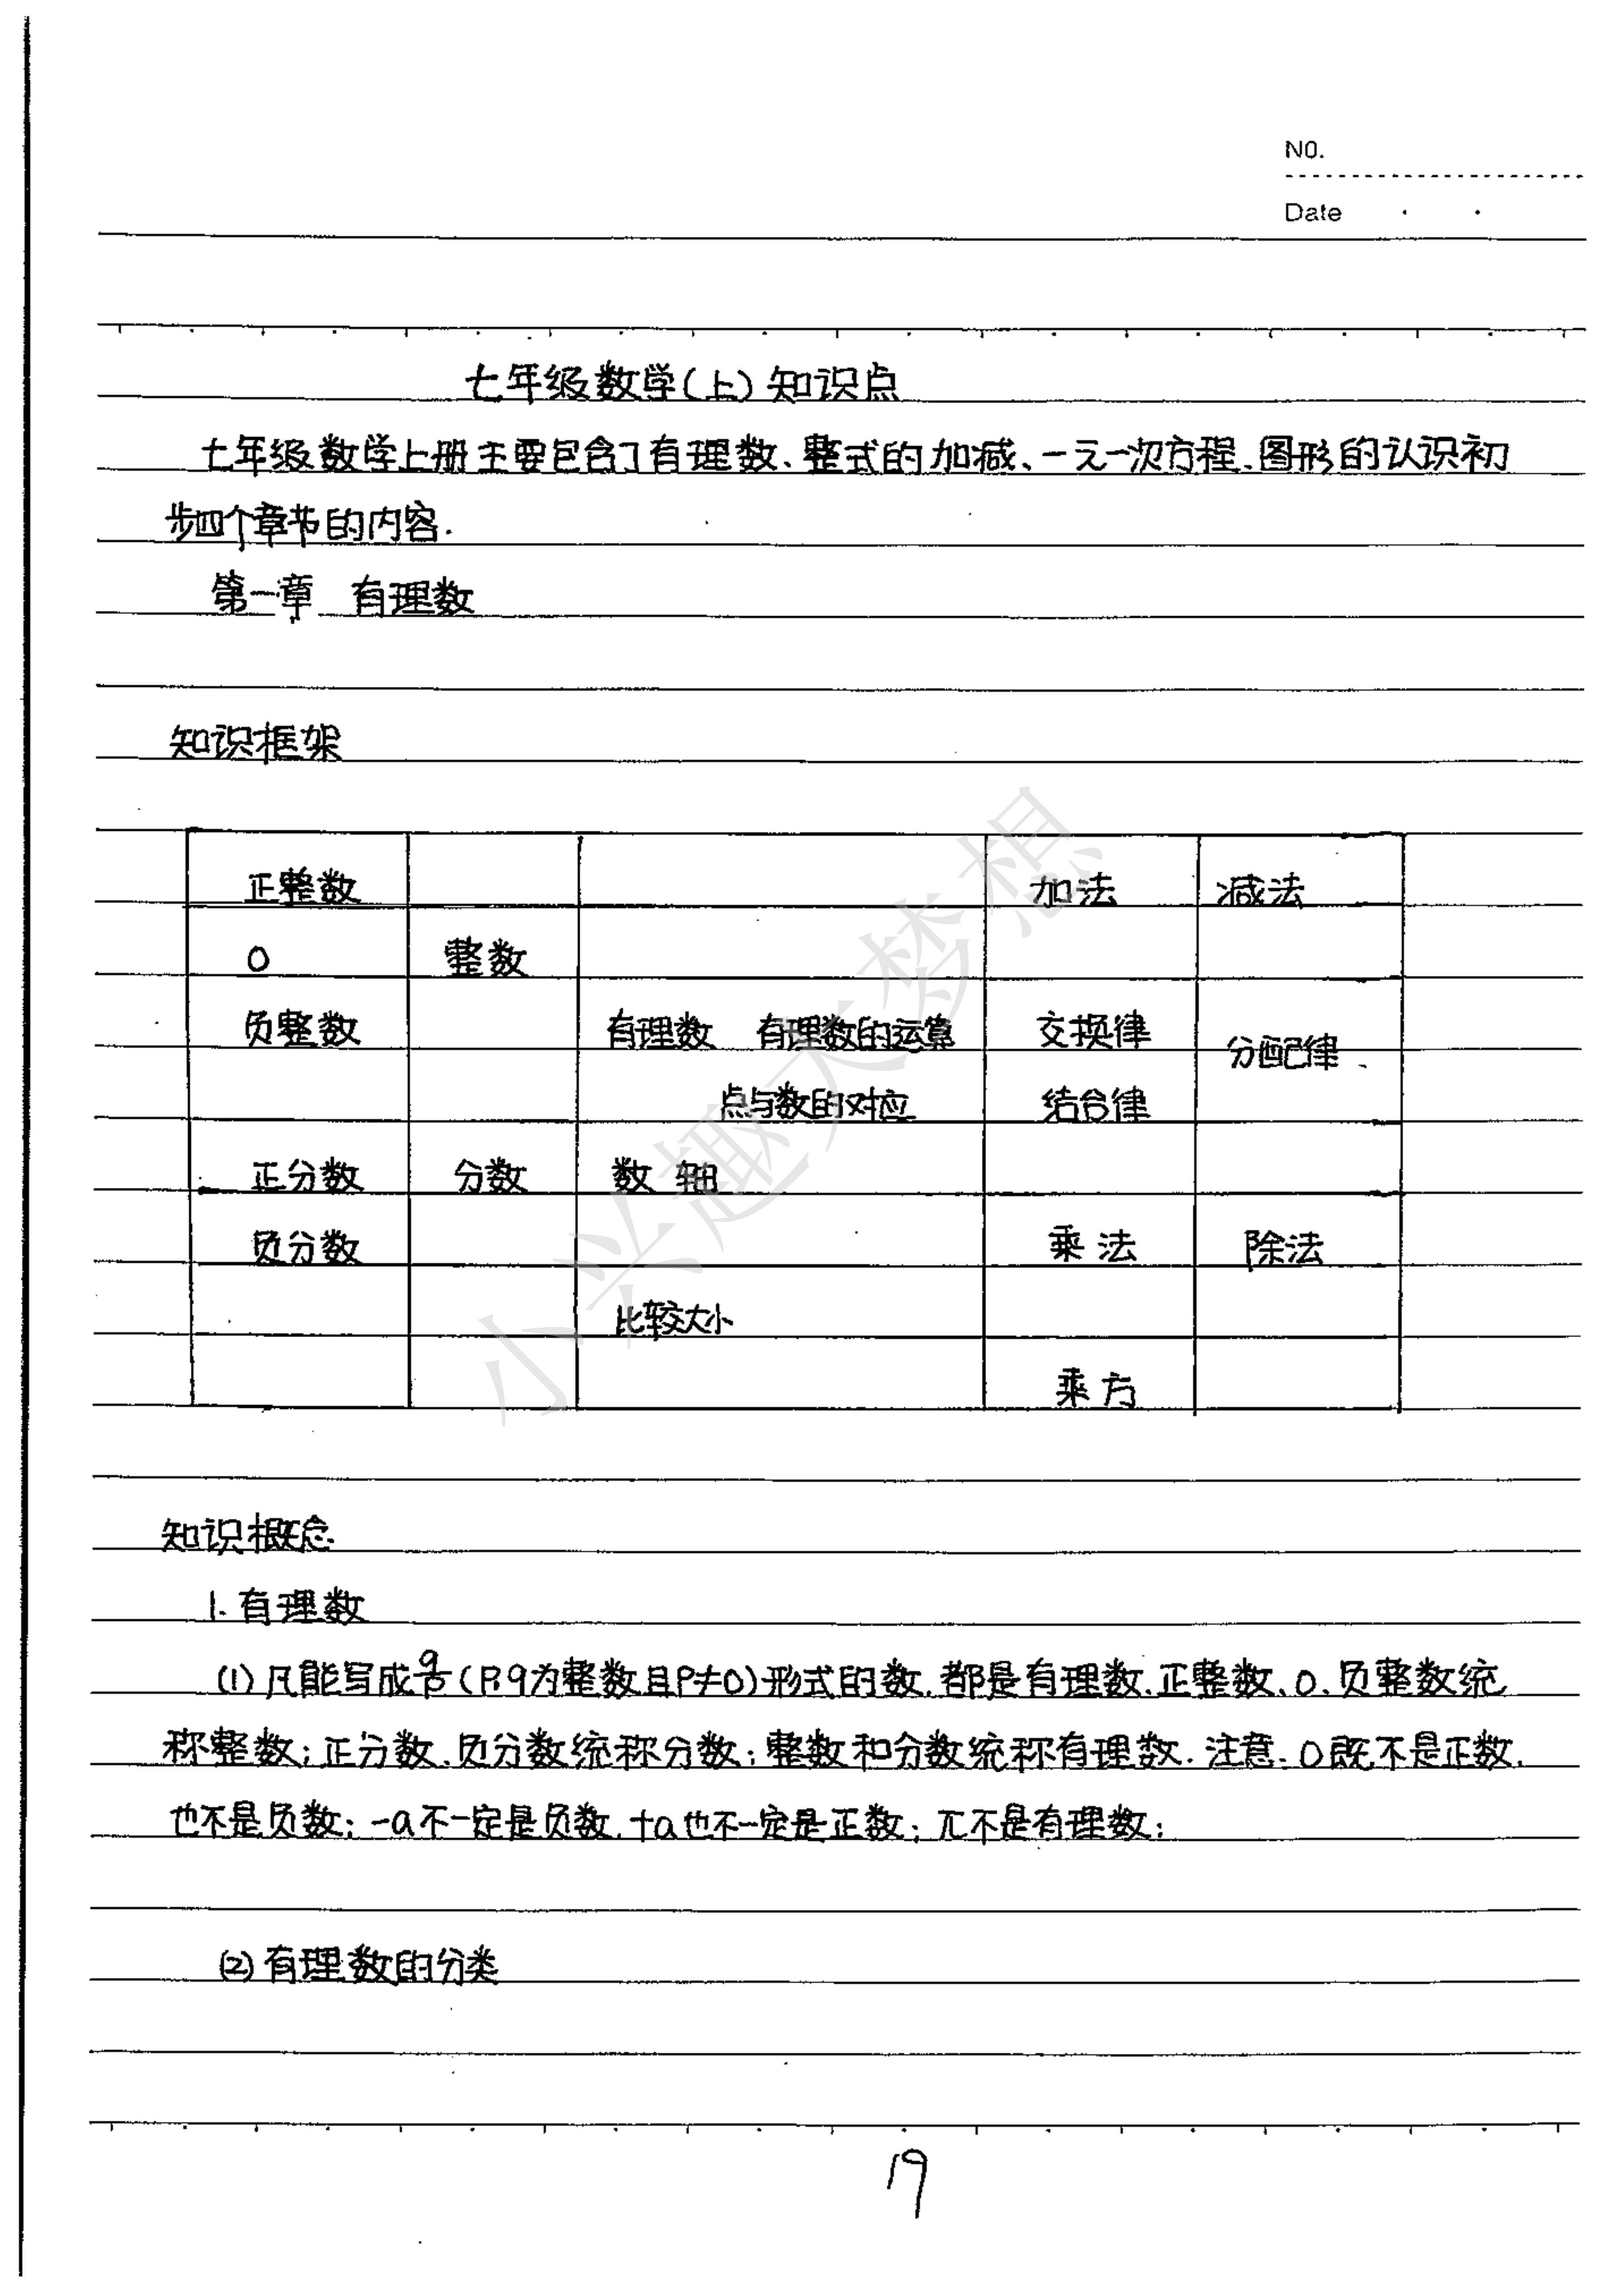 NO.
Date
七年级数学(上)知识点
七年级数学上册主要包含了有理数、整式的加减、一元一次方程、图形的认识初
步四个章节的内容.
第一章 有理数
知识框架
正整数 加法 减法
0 整数
负整数 有理数 有理数的运算 交换律 分配律
点与数的对应 结合律
正分数 分数 数轴
负分数 乘法 除法
比较大小
乘方
知识概念
1.有理数
(1)凡能写成q/p(P,q为整数且P≠0)形式的数,都是有理数.正整数、0、负整数统
称整数;正分数、负分数统称分数;整数和分数统称有理数.注意:0既不是正数,
也不是负数;-a不一定是负数,+a也不一定是正数;π不是有理数;
(2)有理数的分类
19
小兴趣大梦想